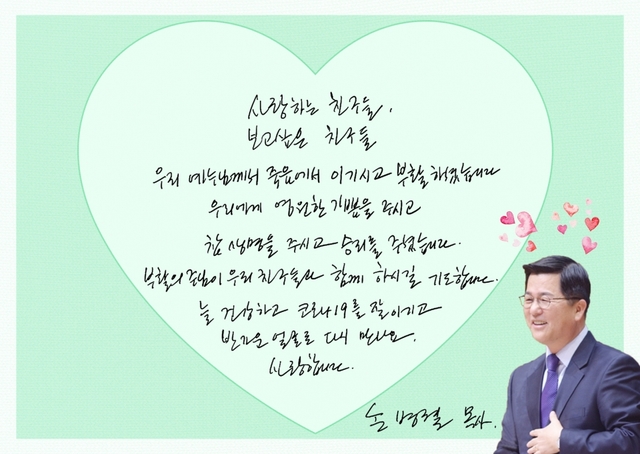 사랑하는 친구들,
보고싶은 친구들
우리 예수님께서 죽음에서 이기시고 부활하셨습니다
우리에게 영원한 기쁨을 주시고
참 생명을 주시고 승리를 주셨습니다.
부활의 주님이 우리 친구들과 함께 하시길 기도합니다.
늘 건강하고 코로나19를 잘 이기고
반가운 얼굴로 다시 만나요.
사랑합니다.
손병렬 목사.